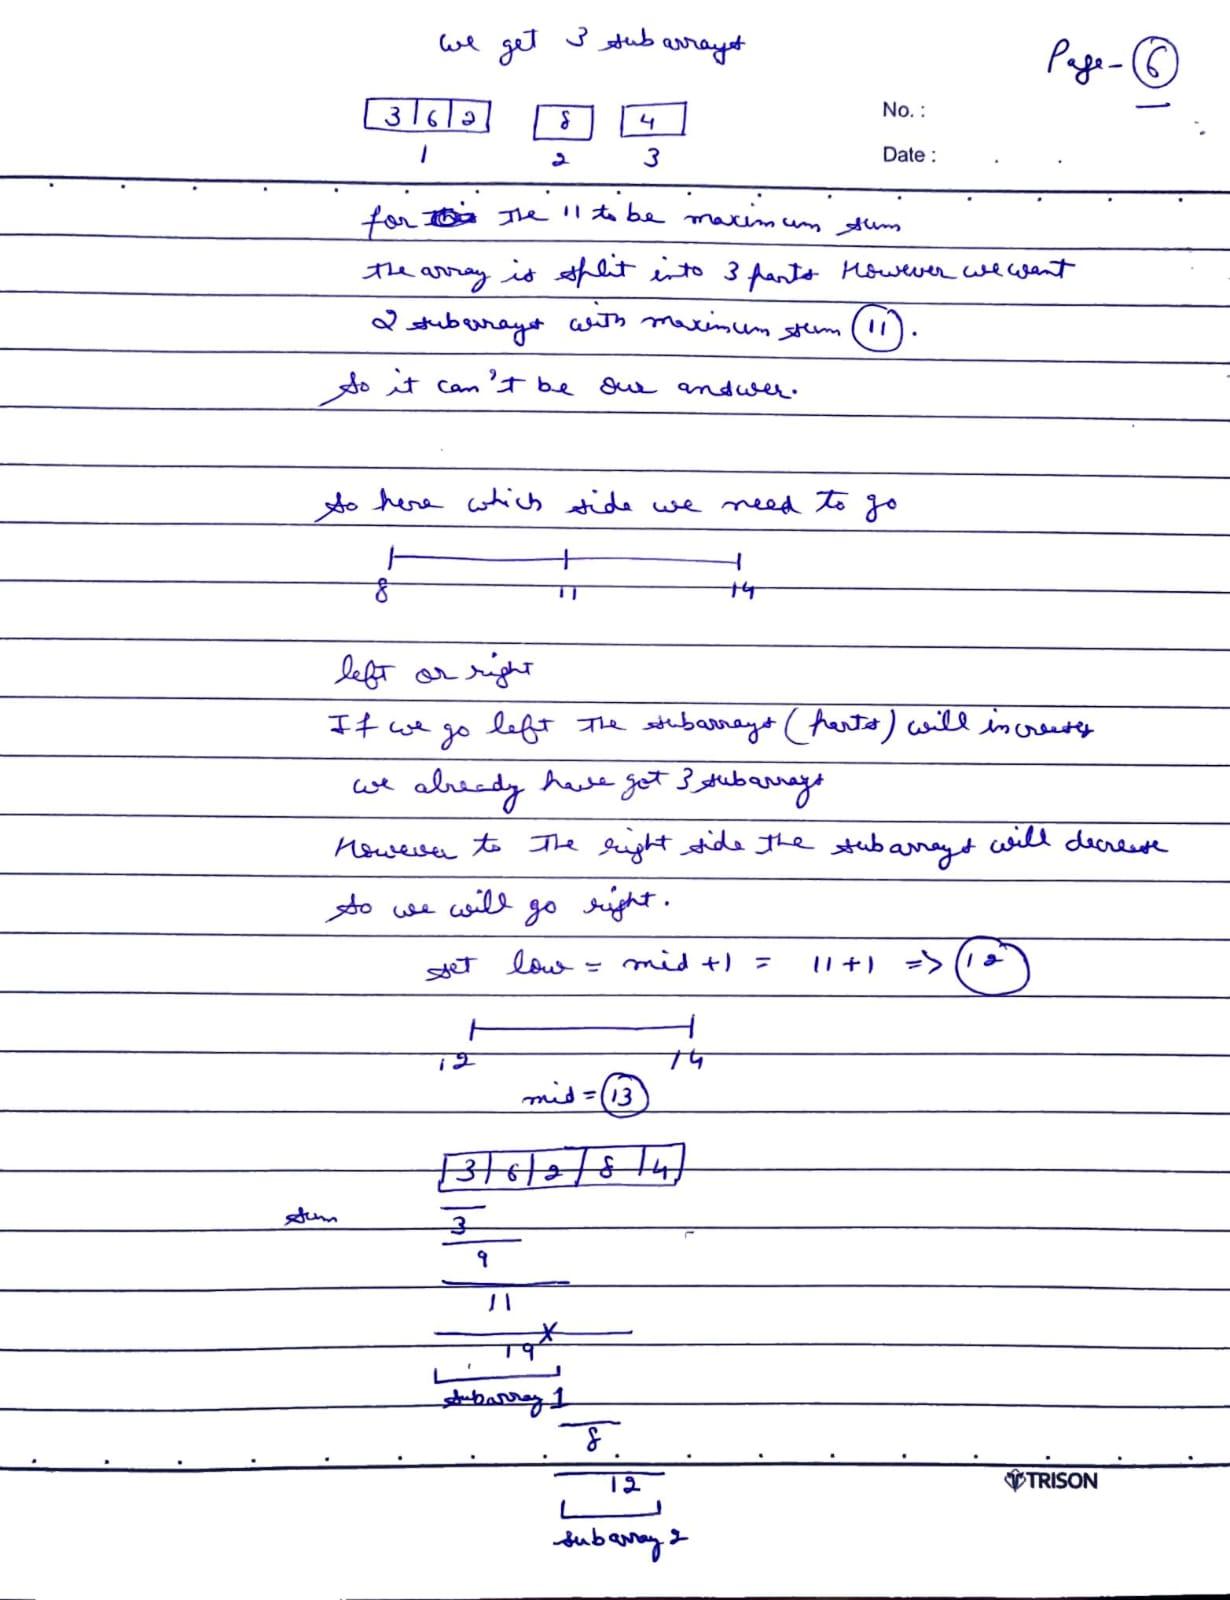 we get 3 subarrays
Page - 6
3 6 2 8 4
1 2 3
No. :
Date :
for the 11 to be maximum sum
the array is split into 3 parts However we want
2 subarrays with maximum sum 11.
So it can't be our answer.
So here which side we need to go
8 11 14
left or right
If we go left the subarrays (parts) will increase
we already have got 3 subarrays
However to the right side the subarrays will decrease
So we will go right.
set low = mid +1 = 11+1 => 12
12 14
mid = 13
3 6 2 8 4
sum
3
9
11
x
19
subarray 1
8
12
TRISON
subarray 2